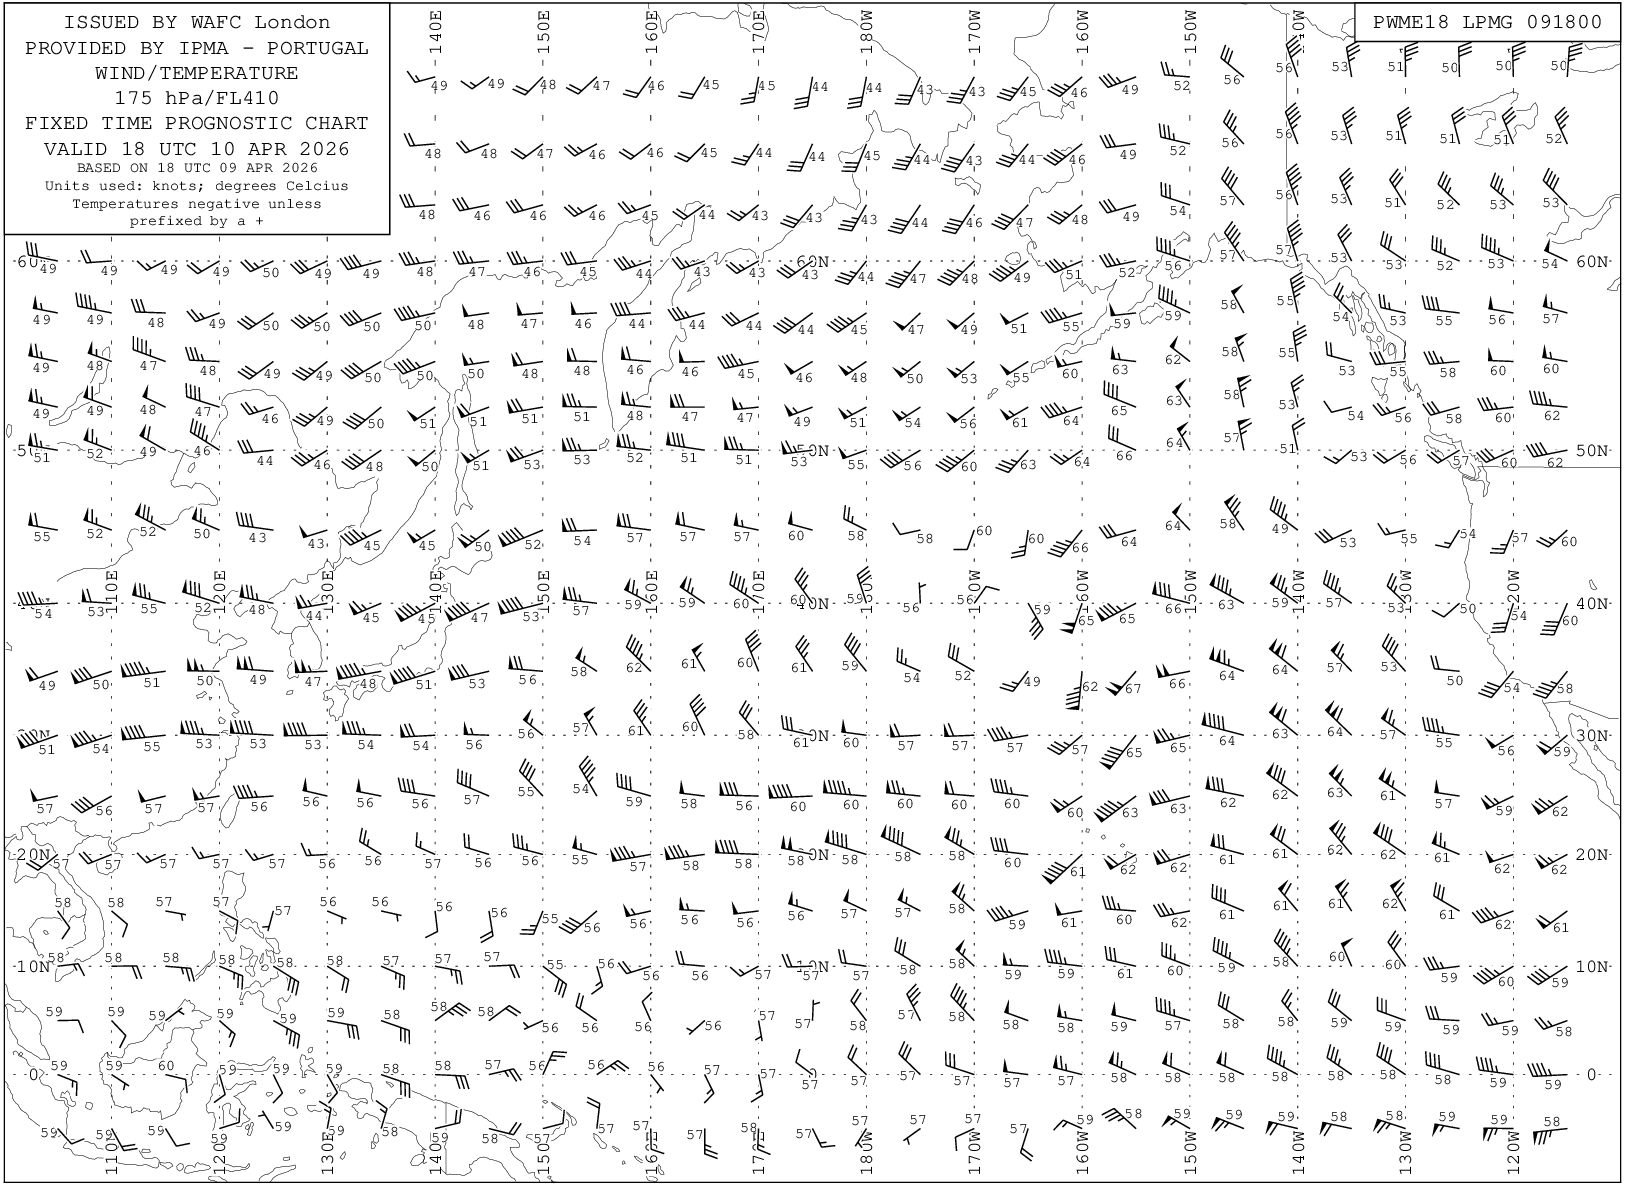 ISSUED BY WAFC London
PROVIDED BY IPMA - PORTUGAL
WIND/TEMPERATURE
175 hPa/FL410
FIXED TIME PROGNOSTIC CHART
VALID 18 UTC 10 APR 2026
BASED ON 18 UTC 09 APR 2026
Units used: knots; degrees Celcius
Temperatures negative unless
prefixed by a +
PWME18 LPMG 091800
140E 150E 160E 170E 180W 170W 160W 150W 140W
49 49 48 47 46 45 45 44 44 43 43 45 46 49 52 56 56 53 51 50 50 50
48 48 47 46 46 45 44 44 45 44 43 44 46 49 52 56 56 53 51 51 51 52
48 46 46 46 45 44 43 43 43 44 46 47 48 49 54 57 56 53 51 52 53 53
60N 60N
49 49 49 49 50 49 49 48 47 46 45 44 43 43 43 44 47 48 49 51 52 56 57 57 53 53 52 53 54
49 49 48 49 50 50 50 50 48 47 46 44 44 44 44 45 47 49 51 55 59 59 58 55 54 53 55 56 57
49 48 47 48 49 49 50 50 50 48 48 46 46 45 46 48 50 53 55 60 63 62 58 55 53 55 58 60 60
49 49 48 47 46 49 50 51 51 51 51 48 47 47 49 51 54 56 61 64 65 63 58 53 54 56 58 60 62
50N 50N
51 52 49 46 44 46 48 50 51 53 53 52 51 51 53 55 56 60 63 64 66 64 57 51 53 56 57 60 62
55 52 52 50 43 43 45 45 50 52 54 57 57 57 60 58 58 60 60 66 64 64 58 49 53 55 54 57 60
110E 120E 130E 140E 150E 160E 170E 180W 170W 160W 150W 140W 130W 120W
40N 40N
54 53 55 52 48 44 45 45 47 53 57 59 59 60 60 59 56 56 59 65 65 66 63 59 57 53 50 54 60
49 50 51 50 49 47 48 51 53 56 58 62 61 60 61 59 54 52 49 62 67 66 64 64 57 53 50 54 58
30N 30N
51 54 55 53 53 53 54 54 56 56 57 61 60 58 61 60 57 57 57 57 65 65 64 63 64 57 55 56 59
57 56 57 57 56 56 56 56 57 55 54 59 58 56 60 60 60 60 60 60 63 63 62 62 63 61 57 59 62
20N 20N
57 57 57 57 57 56 56 57 56 56 55 57 58 58 58 58 58 58 60 61 62 62 61 61 62 62 61 62 62
58 58 57 57 57 56 56 56 56 55 56 56 56 57 56 57 57 58 59 61 60 62 61 61 61 62 61 62 61
10N 10N
58 58 58 58 58 58 57 57 57 55 56 56 56 57 57 57 58 58 59 59 61 60 59 58 60 60 59 60 59
59 59 59 59 59 59 58 58 58 56 56 56 56 57 57 58 57 58 58 56 59 57 58 58 58 58 59 59 58
0 0
59 59 60 59 59 59 58 58 57 56 56 56 57 57 57 57 57 57 57 57 58 58 58 58 58 58 58 59 59
59 59 59 59 59 59 58 59 58 57 57 57 57 58 57 58 57 57 57 59 58 59 59 59 58 58 59 59 58
110E 120E 130E 140E 150E 160E 170E 180W 170W 160W 150W 140W 130W 120W